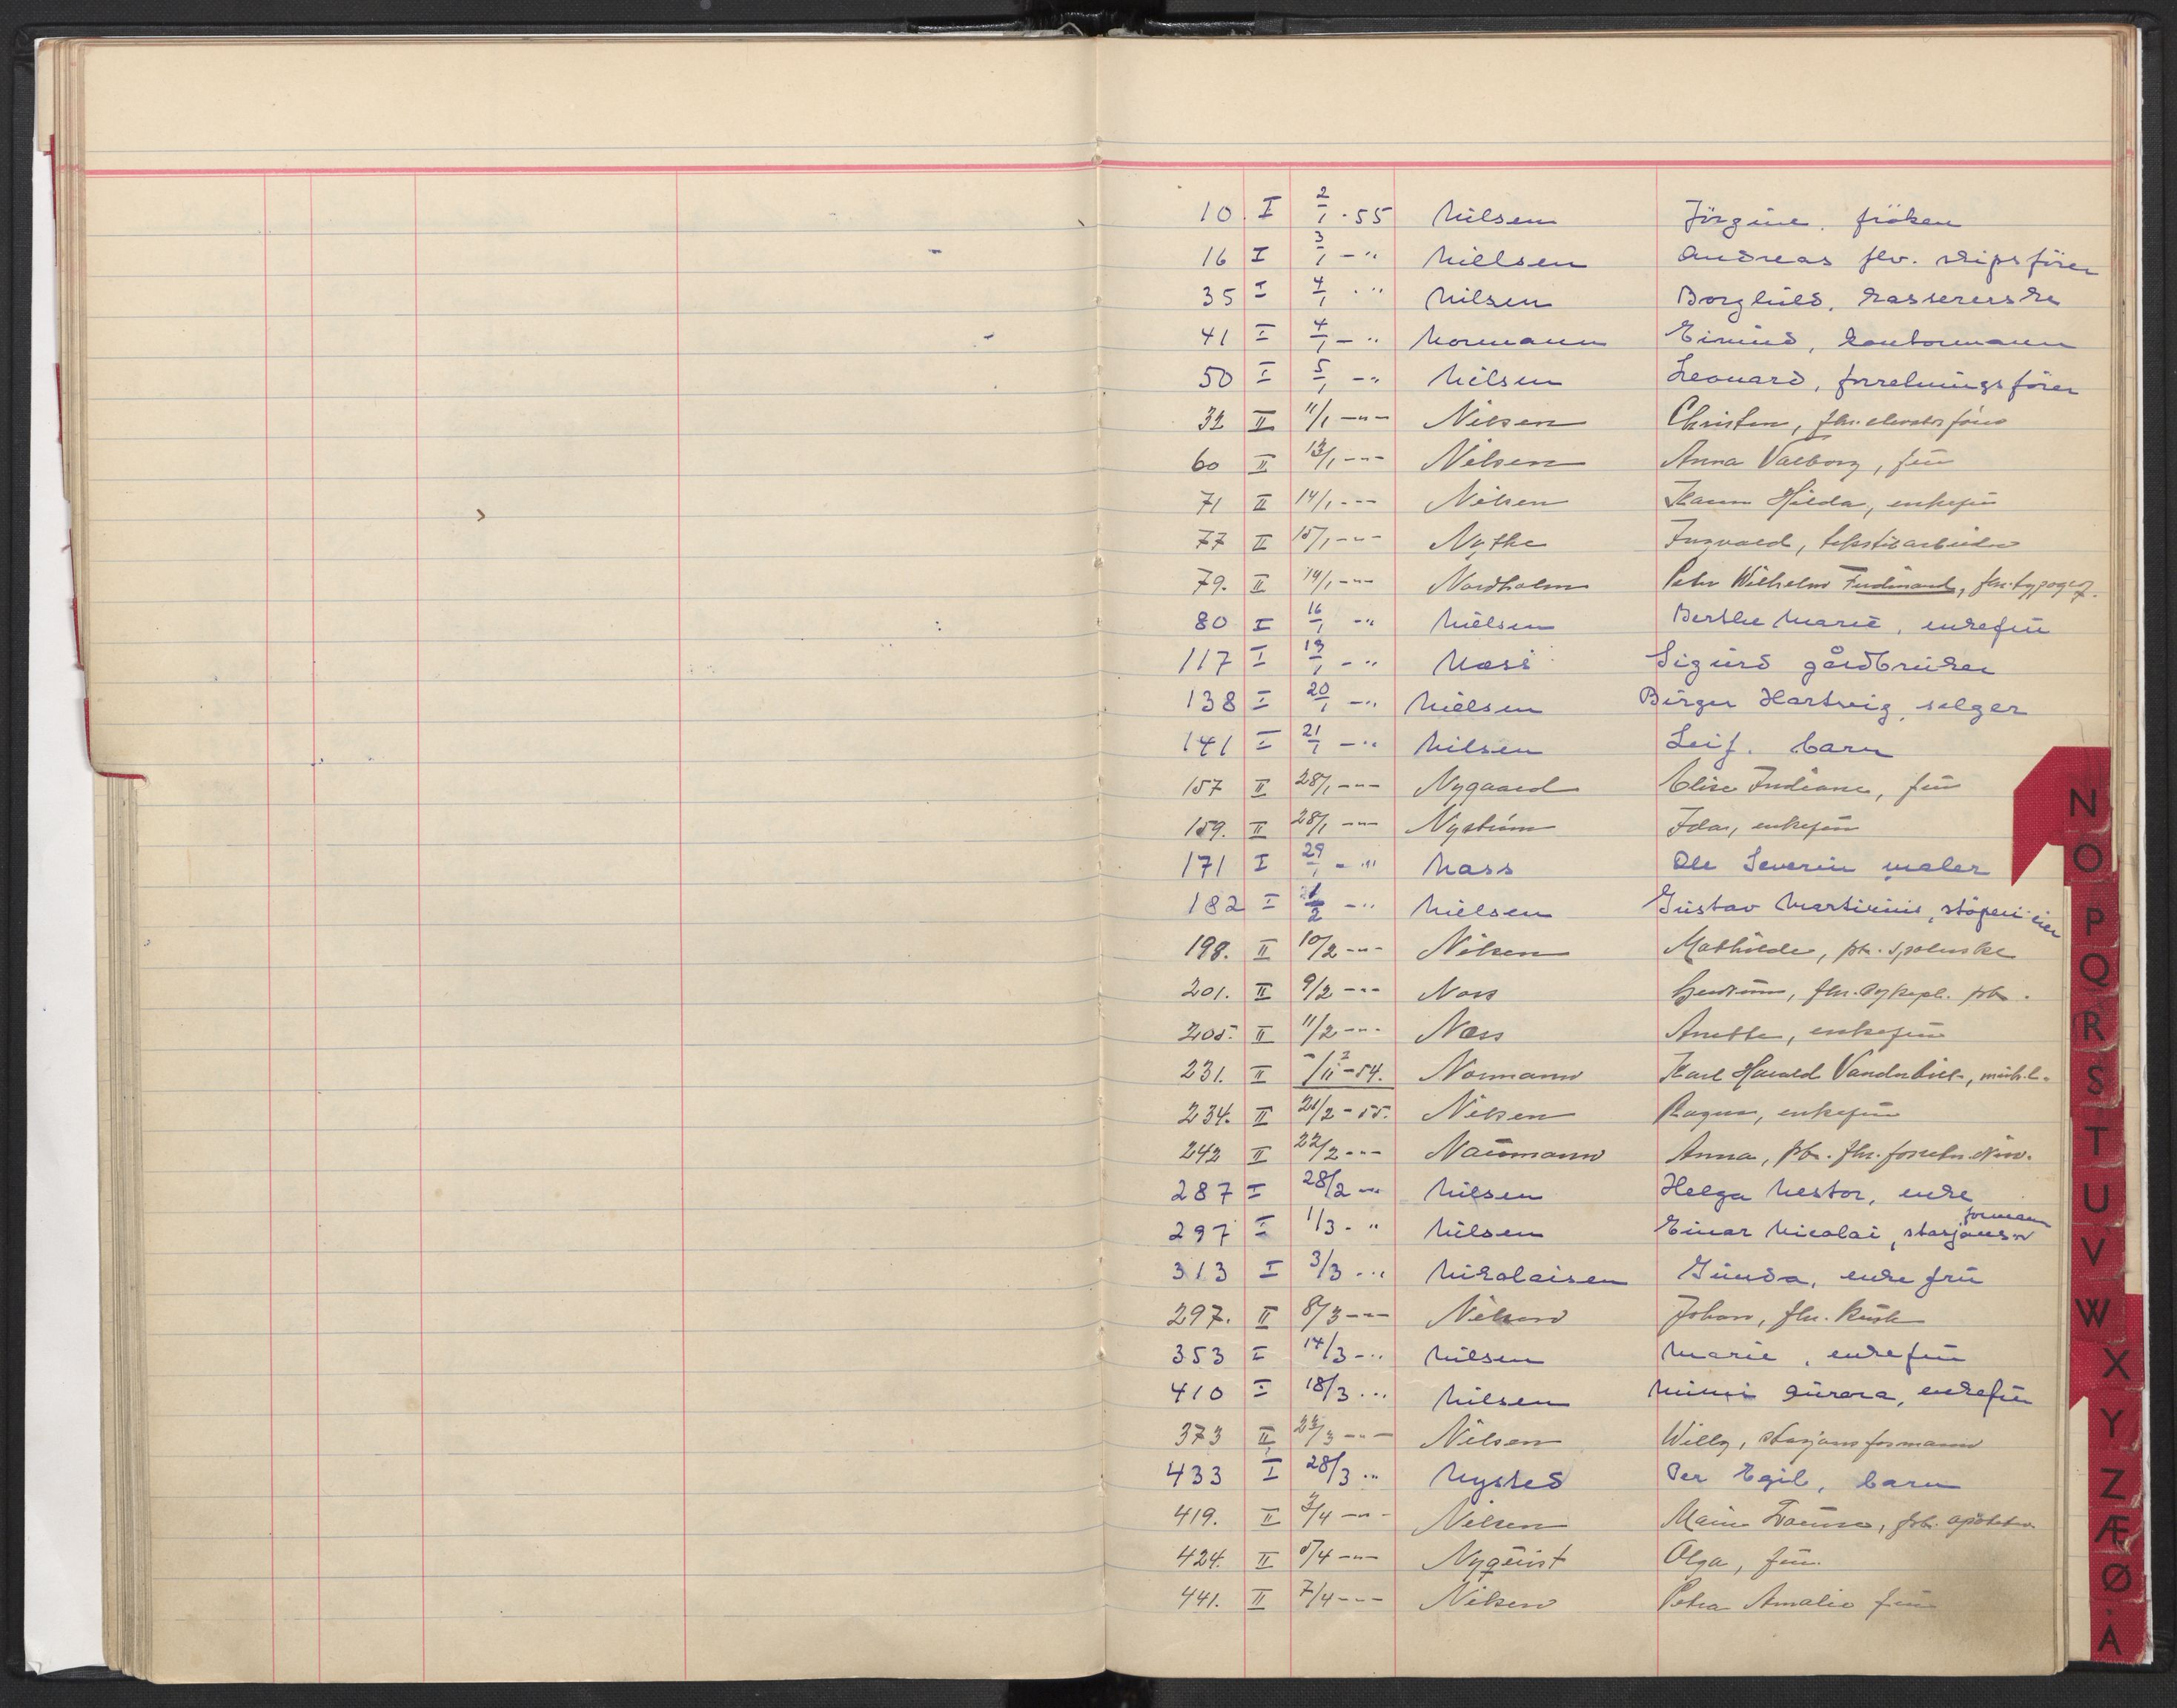 10. I 2/1 - 55 Nilsen Jörgine. fröken
16 I 3/1 - " Nillsen Andreas flv. skipsförer
35 I 4/1 - " Nilsen Borghild, kassererske
41 I 4/1 - " Normann Eivind, kontormann
50 I 5/1 - " Nilsen Leonard, forretningsförer
32 II 11/1 - " - Nilsen Christen, fhv. elevator förer
60 II 13/1 - " - Nilsen Anna Valborg, frü
71 II 14/1 - " - Nilsen Karen Hilda, enkefrü
77 II 15/1 - " - Nythe Ingvald, tekstilarbeider
79. II 14/1 - " - Nordholm Peter Wilhelm Ferdinand, fhv. typogr.
80 I 16/1 - " Nielsen Berthe Marie, enkefrü
117 I 19/1 - " Næss Sigürd gårdbrüker
138 I 20/1 - " Nielsen Birger Hartvig, selger
141 I 21/1 - " Nilsen Leif. barn
157 II 28/1 - " - Nygaard Elise Indiane, frü
159. II 28/1 - " - Nyström Ida, enkefrü
171 I 29/1 - " Næss Ole Severin maler
182 I 1/2 - " Nielsen Güstav Martinius, stöperieier
198. II 10/2 - " - Nilsen Mathilde, ptr. spolerske
201. II 9/2 - " - Næss fhv. sykepl. ptr.
205. II 11/2 - " - Næss Anette, enkefrü
231. II 7/11 - 54. Normann Karl Harald Vanderbilt,
234. II 21/2 - 55. Nilsen Ragna, enkefrü
242 II 22/2 - " - Naümann Anna, ptr. fhv. forretn.
287 I 28/2 - " Nilsen Helga Nestor, enke
297 I 1/3 - " Nilsen Einar Nicolai, stasjons formann
313 I 3/3 - " Nikolaisen Günda, enkefrü
297. II 8/3 - " - Nilsen Johan, fhv. küsk
353 I 14/3 - " Nilsen Marie, enkefrü
410 I 18/3 - " Nilsen Mimi Aürora, enkefrü
373 II 23/3 - " - Nilsen Willy, stasjonsformann
433 I 28/3 - " Nysted Per Egil, barn
419. II 2/4 - " - Nilsen ptr. apoteker
424. II 5/4 - " - Nyqüist Olga, frü
441. II 7/4 - " - Nilsen Petra Amalie frü
N
O
P
Q
R
S
T
U
V
W
X
Y
Z
Æ
Ø
Å